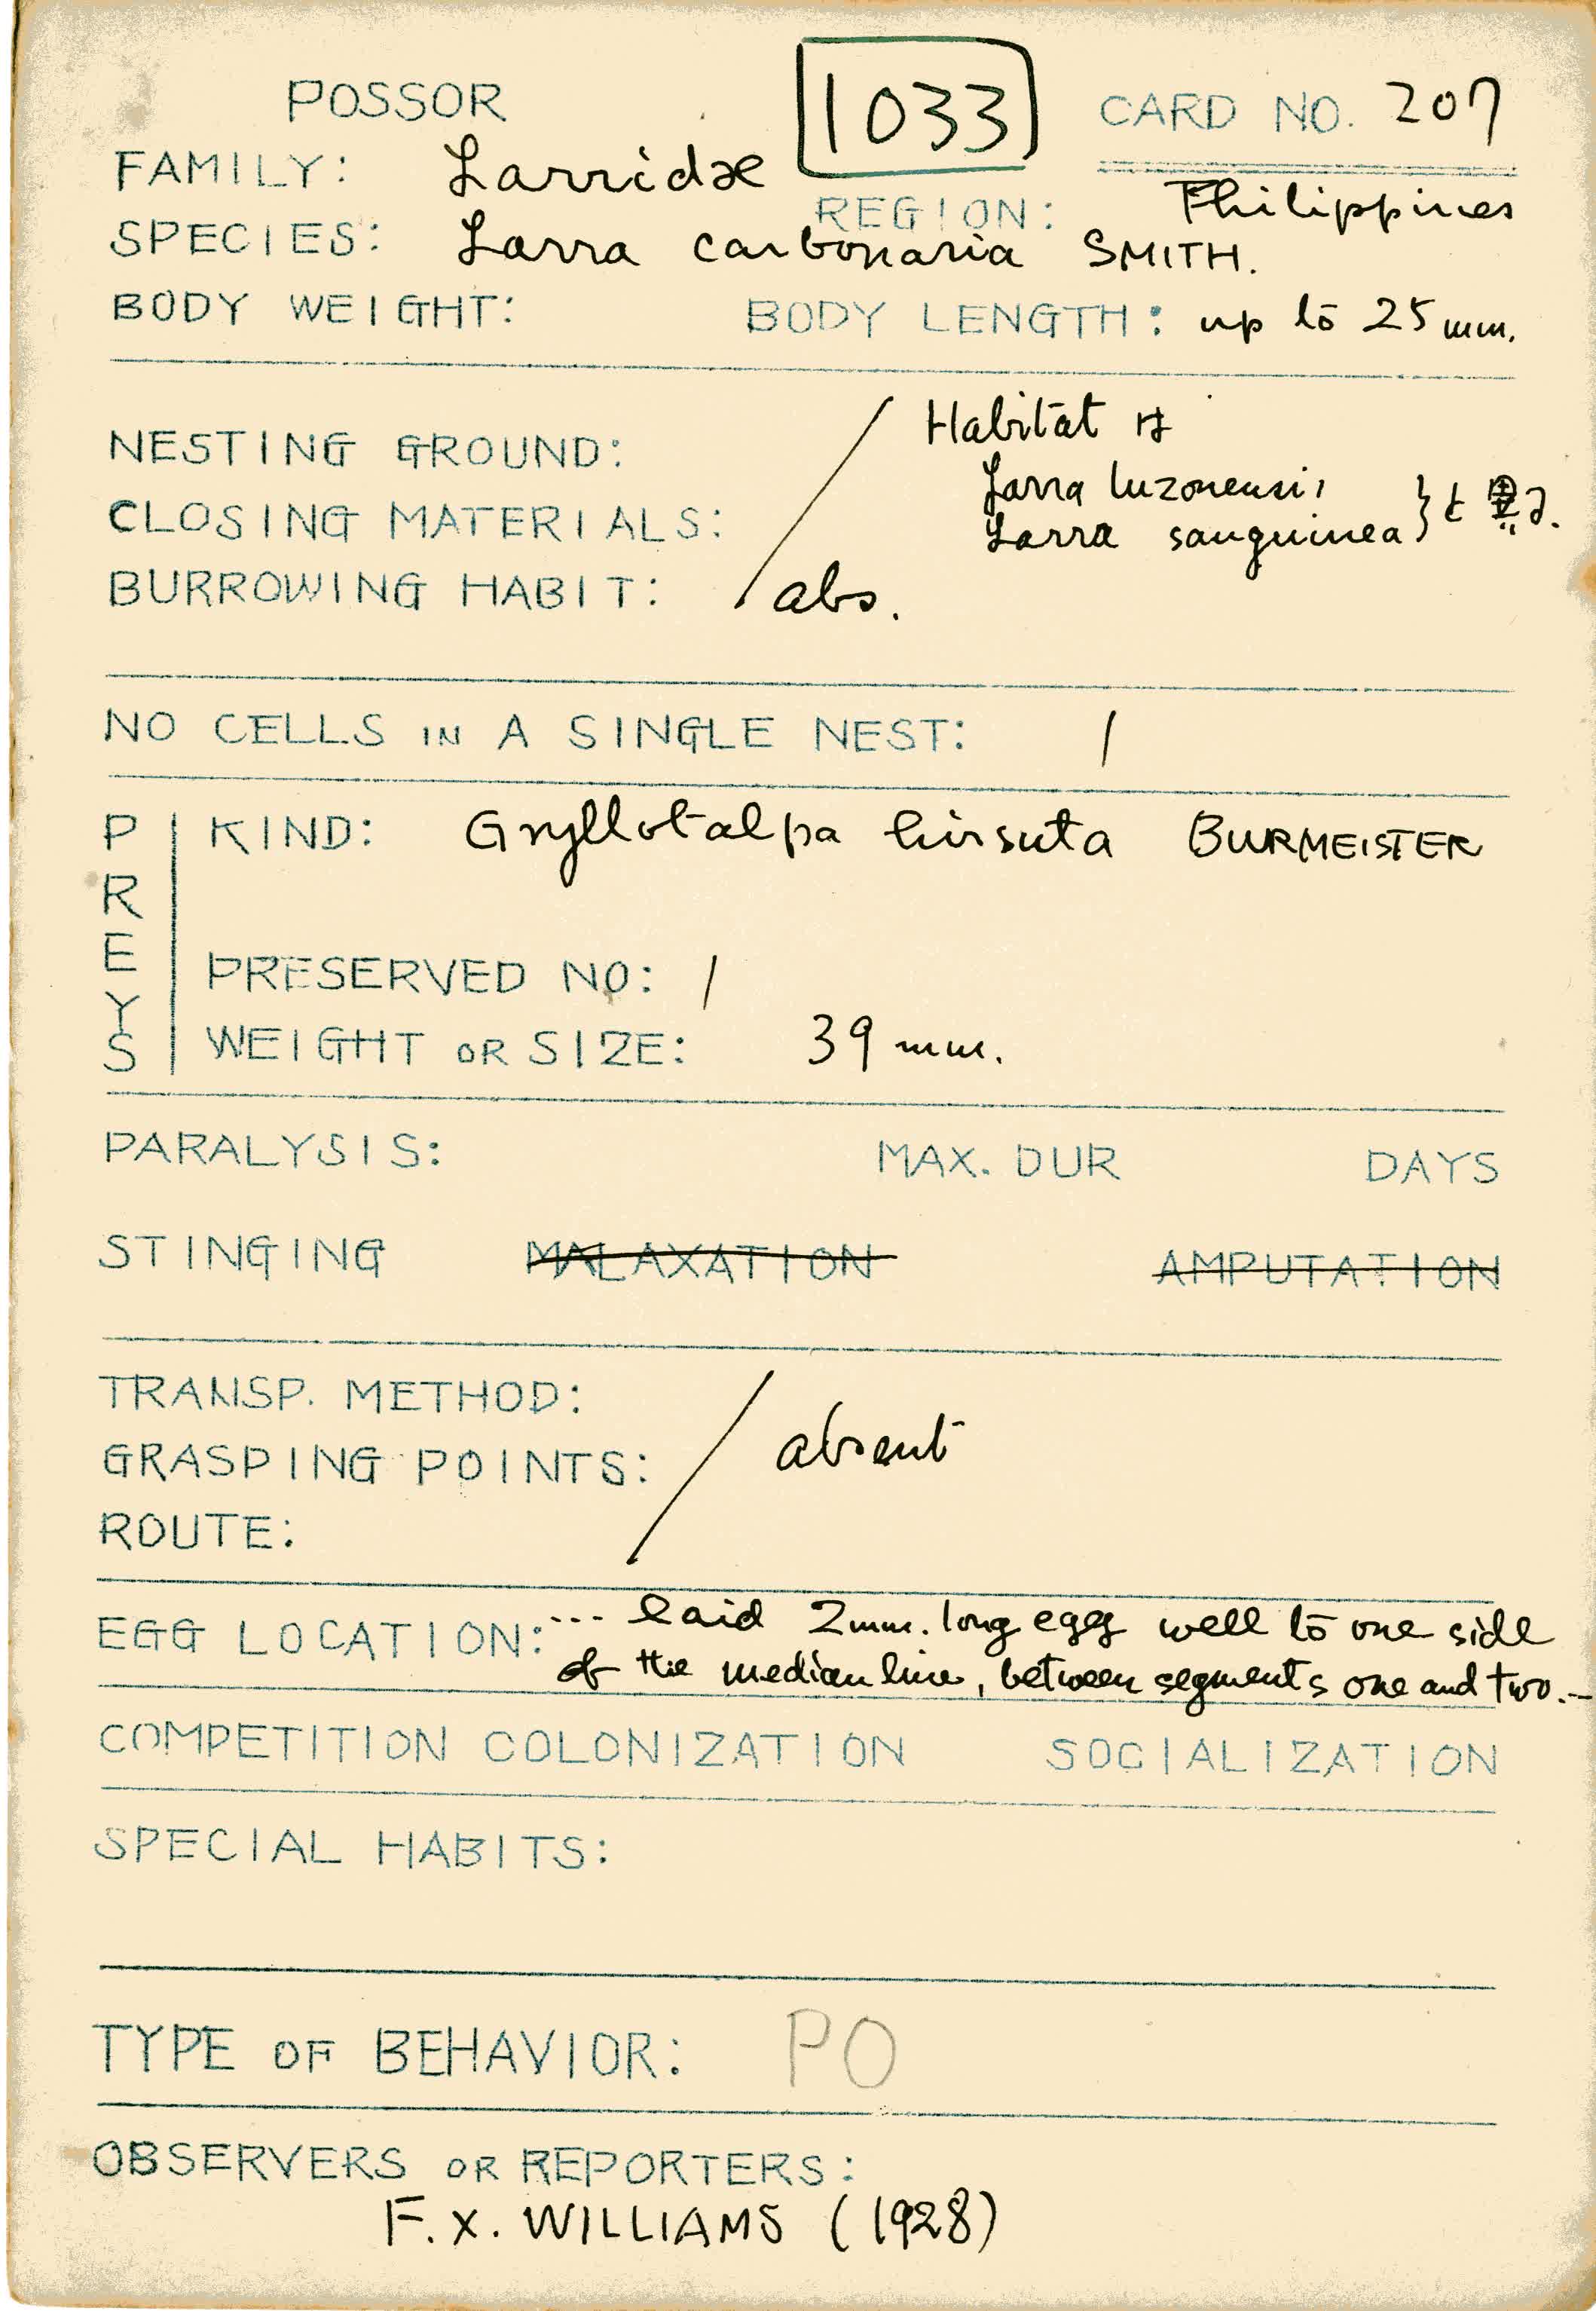 POSSOR 1033 CARD NO. 207
FAMILY: Larridæ
REGION: Philippines
SPECIES: Larra carbonaria SMITH.
BODY WEIGHT: BODY LENGTH: up to 25 mm.
NESTING GROUND: / Habitat は
Larra luzonensis
CLOSING MATERIALS: Larra sanguinea } と
BURROWING HABIT: abs.
NO CELLS IN A SINGLE NEST: 1
PREYS
KIND: Gryllotalpa hirsuta BURMEISTER
PRESERVED NO: 1
WEIGHT OR SIZE: 39 mm.
PARALYSIS: MAX. DUR DAYS
STINGING MALAXATION AMPUTATION
TRANSP. METHOD:
GRASPING POINTS: / absent
ROUTE:
EGG LOCATION: ... laid 2mm. long egg well to one side
of the median line, between segments one and two.--
COMPETITION COLONIZATION SOCIALIZATION
SPECIAL HABITS:
TYPE OF BEHAVIOR: PO
OBSERVERS OR REPORTERS:
F. X. WILLIAMS (1928)